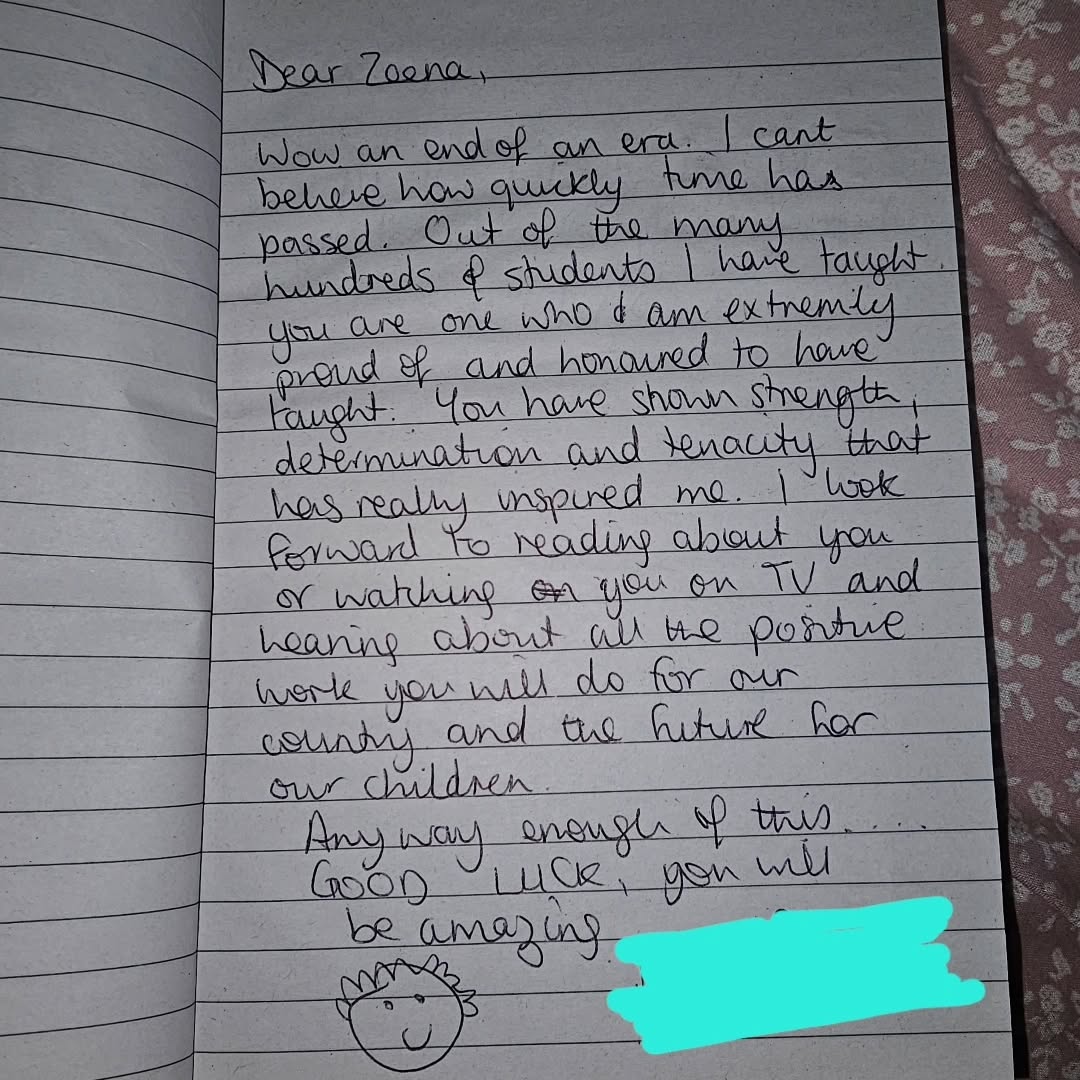 Dear Zoena,
Wow an end of an era. I cant
believe how quickly time has
passed. Out of the many
hundreds of students I have taught.
you are one who I am extremily
proud of and honoured to have
taught. You have shown strength,
determination and tenacity that
has really inspired me. I look
forward to reading about you
or watching you on TV and
hearing about all the positive
work you will do for our
country and the future for
our children.
Anyway enough of this.....
GOOD LUCK, you will
be amazing